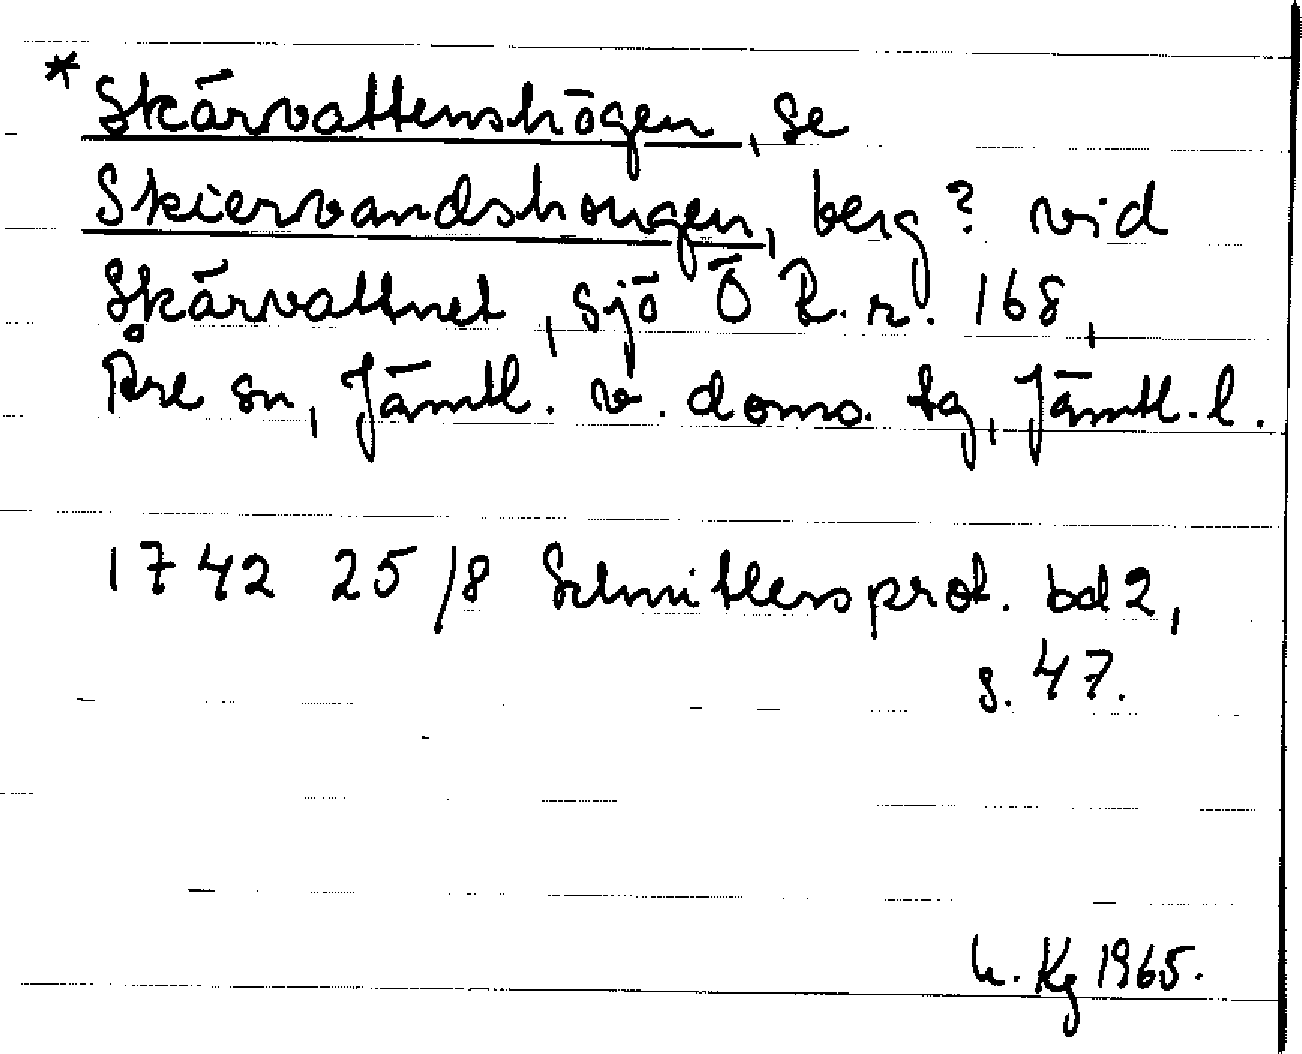 * Skärvattenshögen, se
Skiervandshougen, berg? vid
Skärvattnet, sjö Ö R.r. 168,
Åre sn, Jämtl. v. doms. tg, Jämtl. l.
1742 25/8 Schnitlers prot. bd 2,
s. 47.
h. Kg 1965.